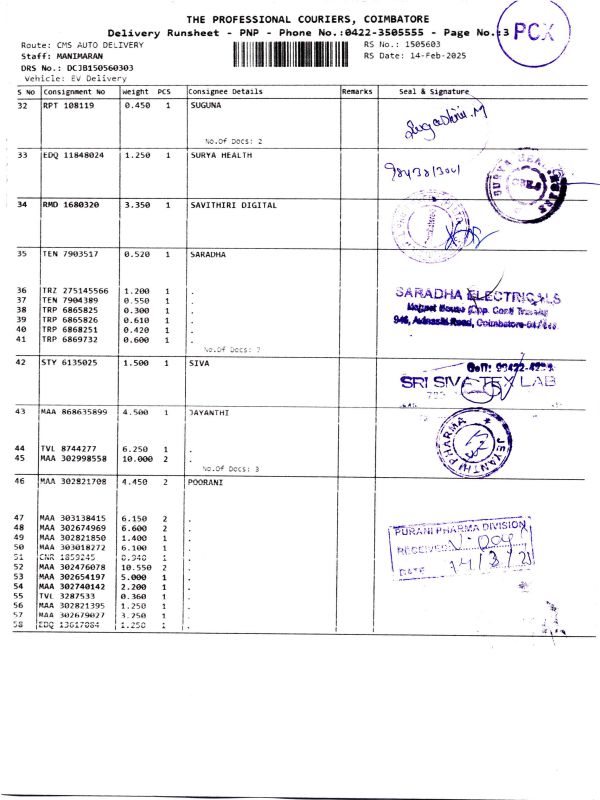 THE PROFESSIONAL COURIERS, COIMBATORE
Delivery Runsheet - PNP - Phone No.:0422-3505555 - Page No.:3
PCX
Route: CMS AUTO DELIVERY
RS No.: 1505603
Staff: MANIMARAN
RS Date: 14-Feb-2025
DRS No.: DCJB150560303
Vehicle: EV Delivery
S No Consignment No Weight PCS Consignee Details Remarks Seal & Signature
32 RPT 108119 0.450 1 SUGUNA
No.Of Docs: 2
33 EDQ 11848024 1.250 1 SURYA HEALTH
34 RMD 1680320 3.350 1 SAVITHIRI DIGITAL
35 TEN 7903517 0.520 1 SARADHA
36 TRZ 275145566 1.200 1 .
SARADHA ELECTRICALS
37 TEN 7904389 0.550 1 .
38 TRP 6865825 0.300 1 .
39 TRP 6865826 0.610 1 .
946, Avinashi Road, Coimbatore
40 TRP 6868251 0.420 1 .
41 TRP 6869732 0.600 1 .
No.Of Docs: 7
42 STY 6135025 1.500 1 SIVA
SRI SIVA TEX LAB
43 MAA 868635899 4.500 1 JAYANTHI
JEYANTHI PHARMA
44 TVL 8744277 6.250 1 .
45 MAA 302998558 10.000 2 .
No.Of Docs: 3
46 MAA 302821708 4.450 2 POORANI
47 MAA 303138415 6.150 2 .
48 MAA 302674969 6.600 2 .
PURANI PHARMA DIVISION
49 MAA 302821850 1.400 1 .
50 MAA 303018272 6.100 1 .
RECEIVED
51 CNR 1859245 0.940 1 .
52 MAA 302476078 10.550 2 .
DATE
53 MAA 302654197 5.000 1 .
54 MAA 302740142 2.200 1 .
55 TVL 3287533 0.360 1 .
56 MAA 302821395 1.250 1 .
57 MAA 302679027 3.250 1 .
58 EDQ 13617084 1.250 1 .